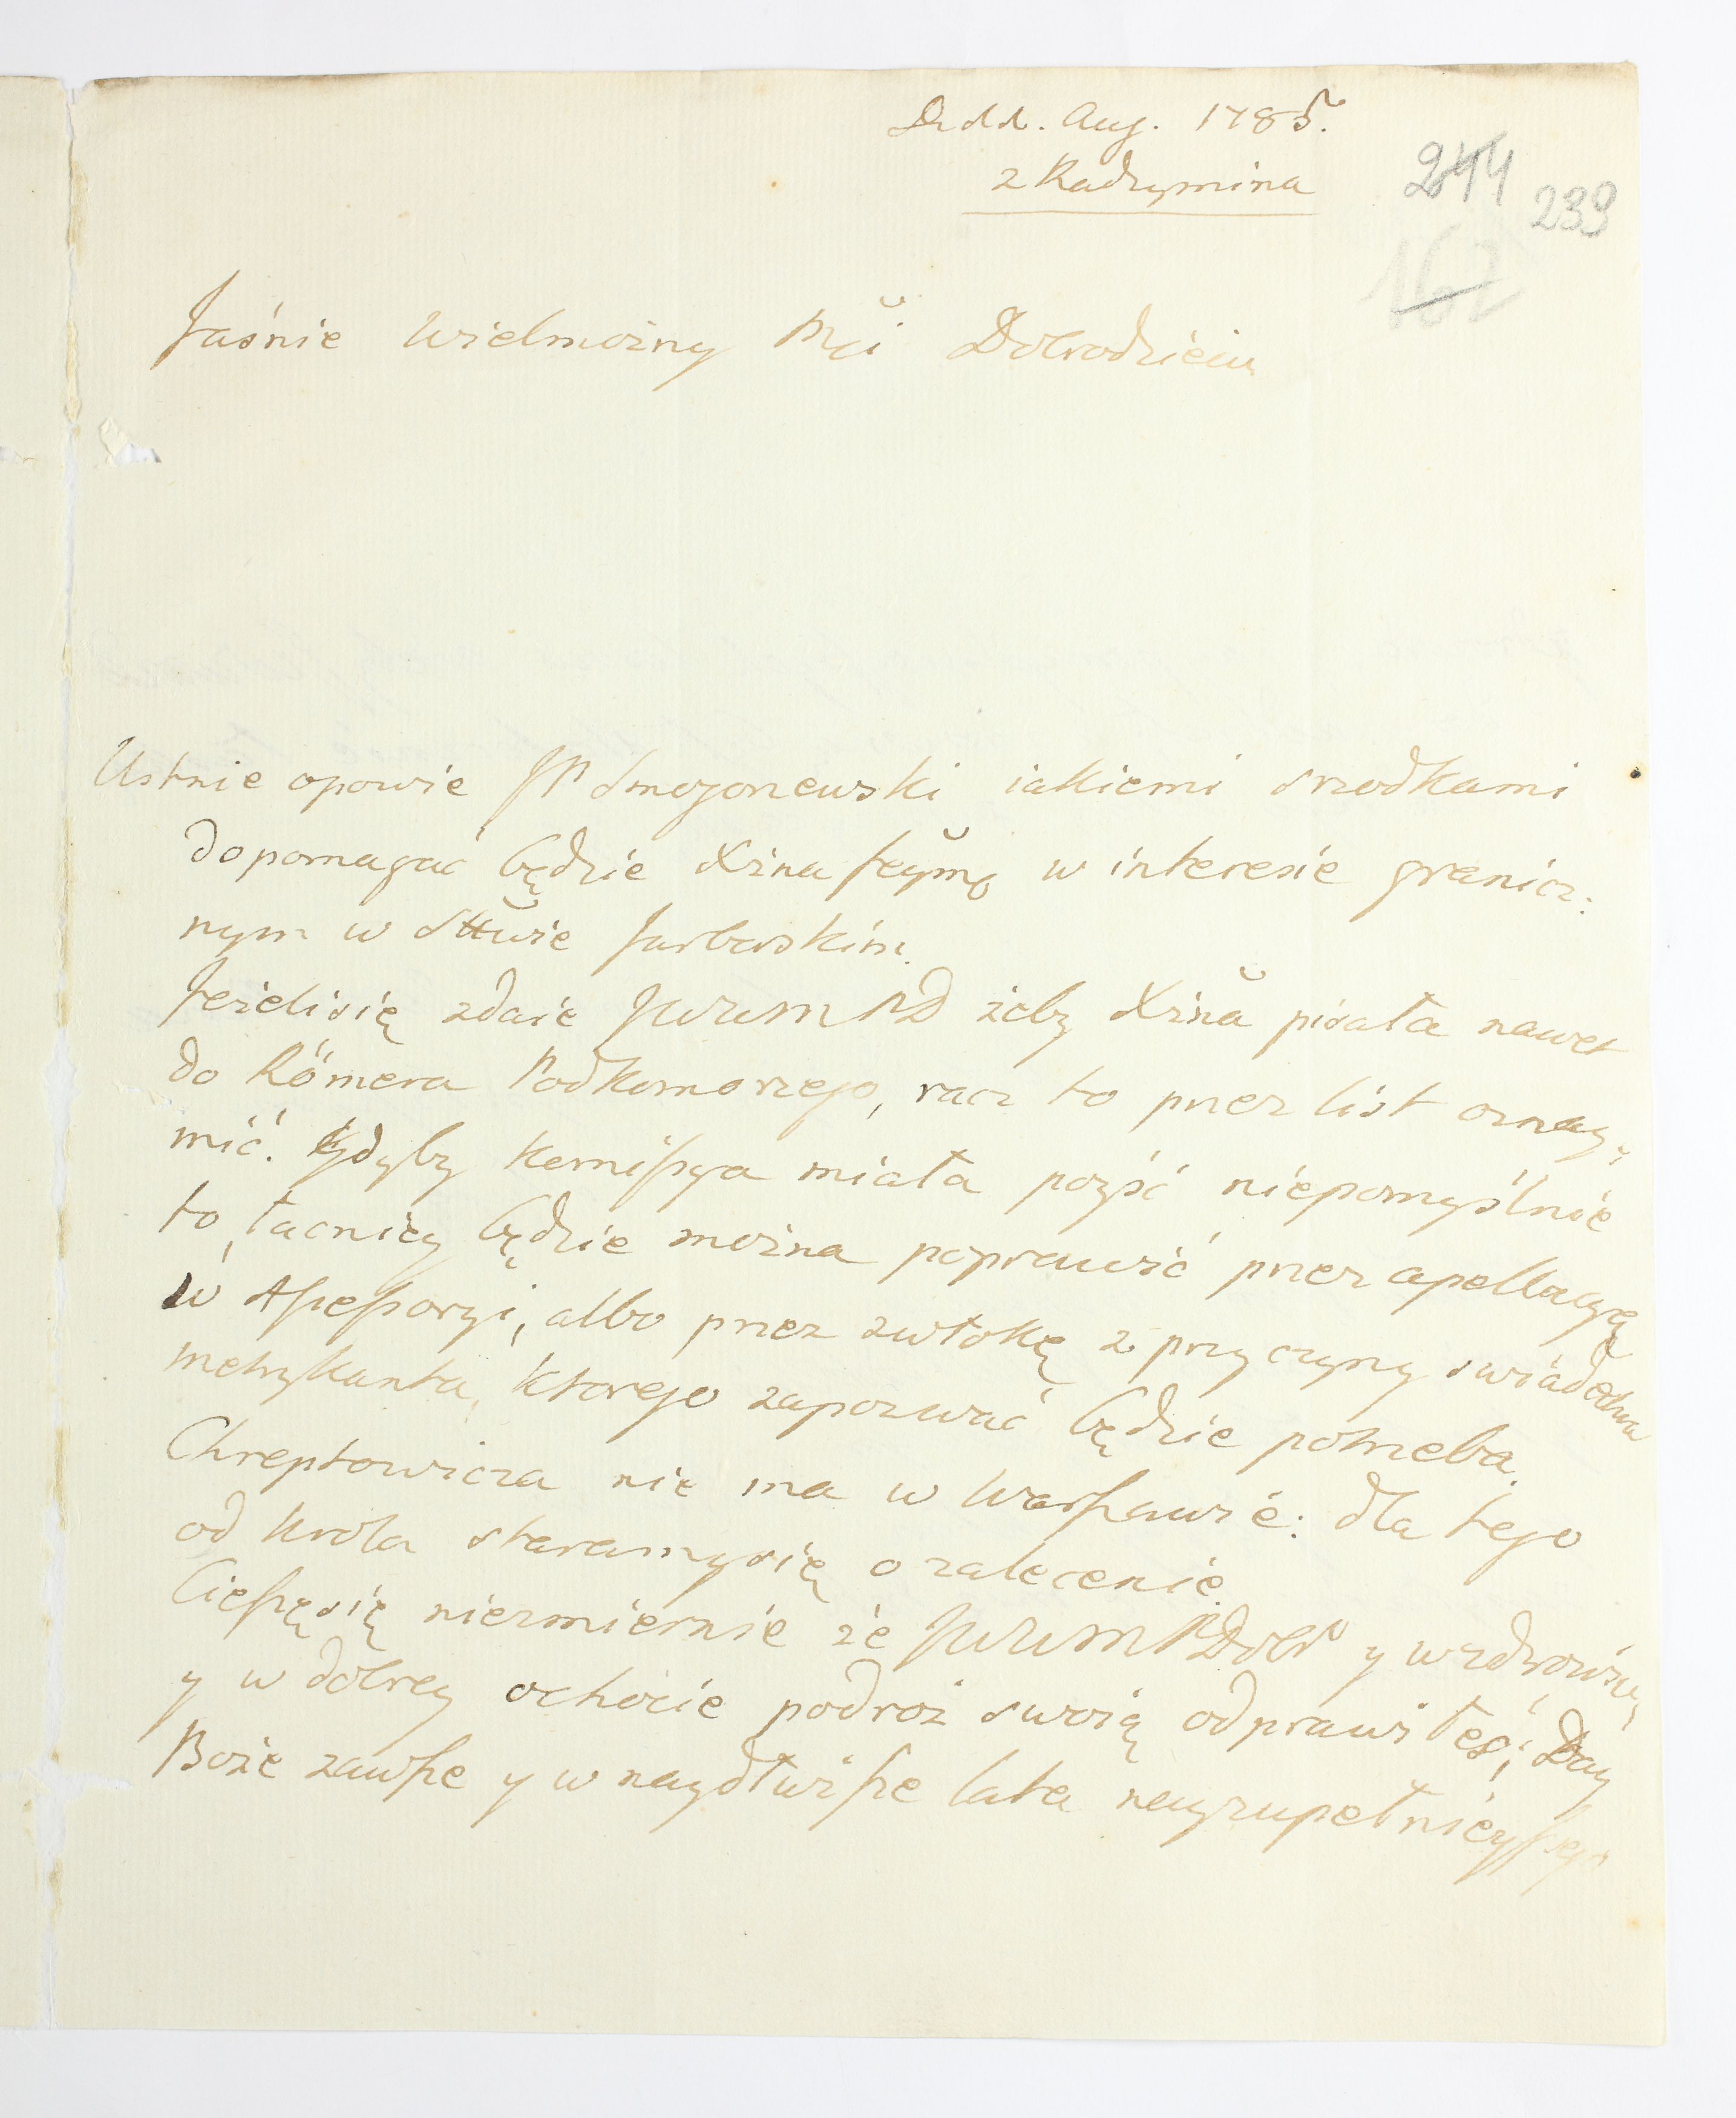 D. d d. Aug. 1785.
z Radzymina
244 239
167
Jaśnie Wielmożny Mći Dobrodzieiu
Ustnie opowie JP Smogonewski iakiemi srzodkami
dopomagać będzie Xżna Jeymć w interesie granicz:
nym w Sttwie Jurborskim.
Jeżeli się zdaie JWWM PD żeby Xżna pisała nawet
do Römera Podkomorzego, racz to przez list oznay:
mić. Gdyby Komissya miała poyść niepomyślnie
to, łacniey będzie można poprawić przez apellacyą
w Assessoryi, albo przez zwłokę z przyczyny swiadectwa
metrykanta, ktorego zapozwać będzie potrzeba.
Chreptowicza nie ma w Warszawie: dla tego
od Krola staramy się o zalecenie.
Cieszę się niezmiernie że JWWM PDobr y w zdrowiu,
y w dobrey ochocie podroż swoię odprawiłeś; Day
Boże zawsze y w naydłuższe lata nayzupełnieyszego